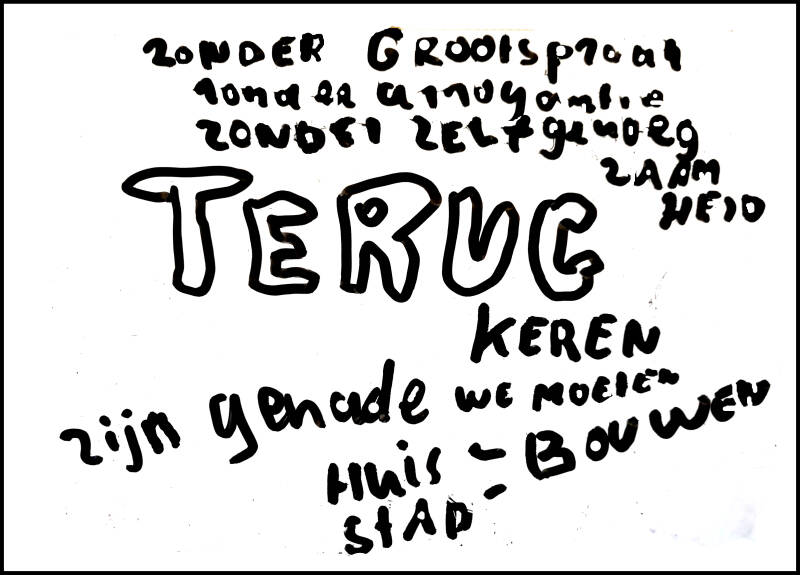 ZONDER GROOTSPRAAT
ZONDER ARROGANTIE
ZONDER ZELFgenoeg
ZAAM
HEID
TERUG
KEREN
zijn genade WE MOETEN
HUIS - BOUWEN
STAD -